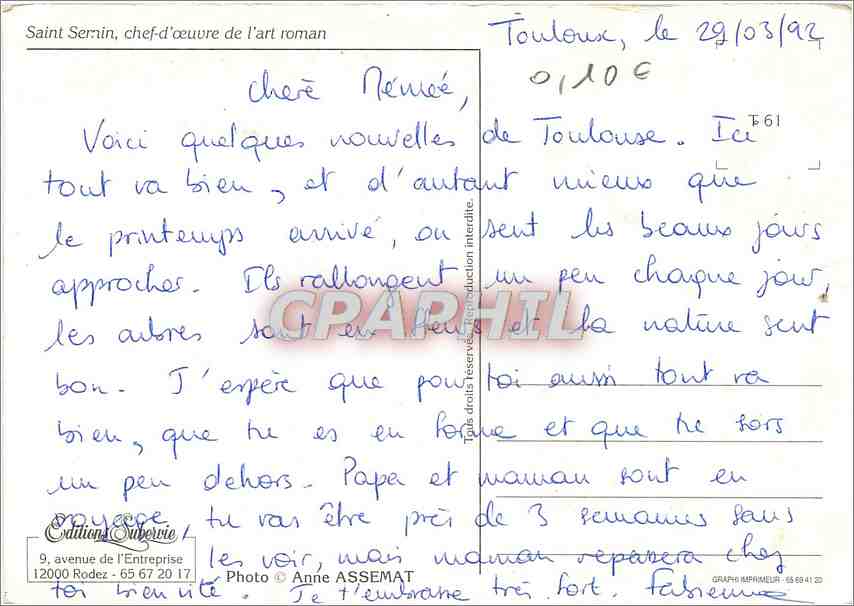 Saint Sernin, chef-d'œuvre de l'art roman
Toulouse, le 29/03/92
0,10 €
chère Mémée,
T 61
Voici quelques nouvelles de Toulouse. Ici
tout va bien, et d'autant mieux que
le printemps arrivé, on sent les beaux jours
approcher. Ils rallongent un peu chaque jour,
les arbres sont en fleurs et la nature sent
bon. J'espère que pour toi aussi tout va
bien, que tu es en forme et que tu sors
un peu dehors. Papa et maman sont en
voyage, tu vas être près de 3 semaines sans
les voir, mais maman repassera chez
toi bien vite. Je t'embrasse très fort. Fabienne
CPAPHIL
Tous droits réservés. Reproduction interdite.
Editions Subervie
9, avenue de l'Entreprise
12000 Rodez - 65 67 20 17
Photo © Anne ASSEMAT
GRAPHI IMPRIMEUR - 65 69 41 20